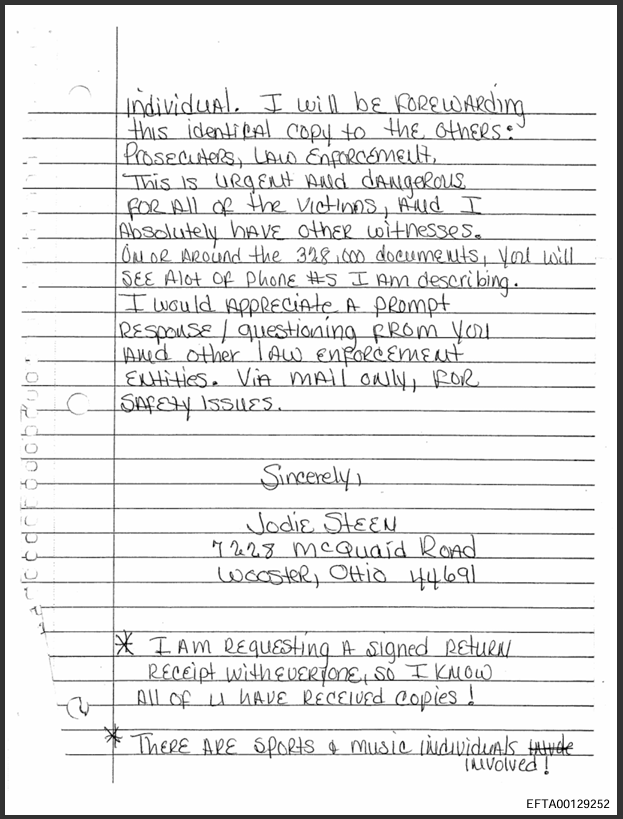 individual. I will be forewarding
this identical copy to the others:
Prosecuters, Law Enforcement.
This is urgent and dangerous
for all of the victims, and I
Absolutely have other witnesses.
On or around the 328,000 documents, you will
see alot of phone #s I am describing.
I would appreciate a prompt
response/questioning from you
and other law enforcement
entities. Via mail only, for
safety issues.
Sincerely,
Jodie Steen
7228 McQuaid Road
Wooster, Ohio 44691
* I am requesting a signed return
receipt with everyone, so I know
all of u have received copies!
* There are sports & music individuals
involved!
EFTA00129252